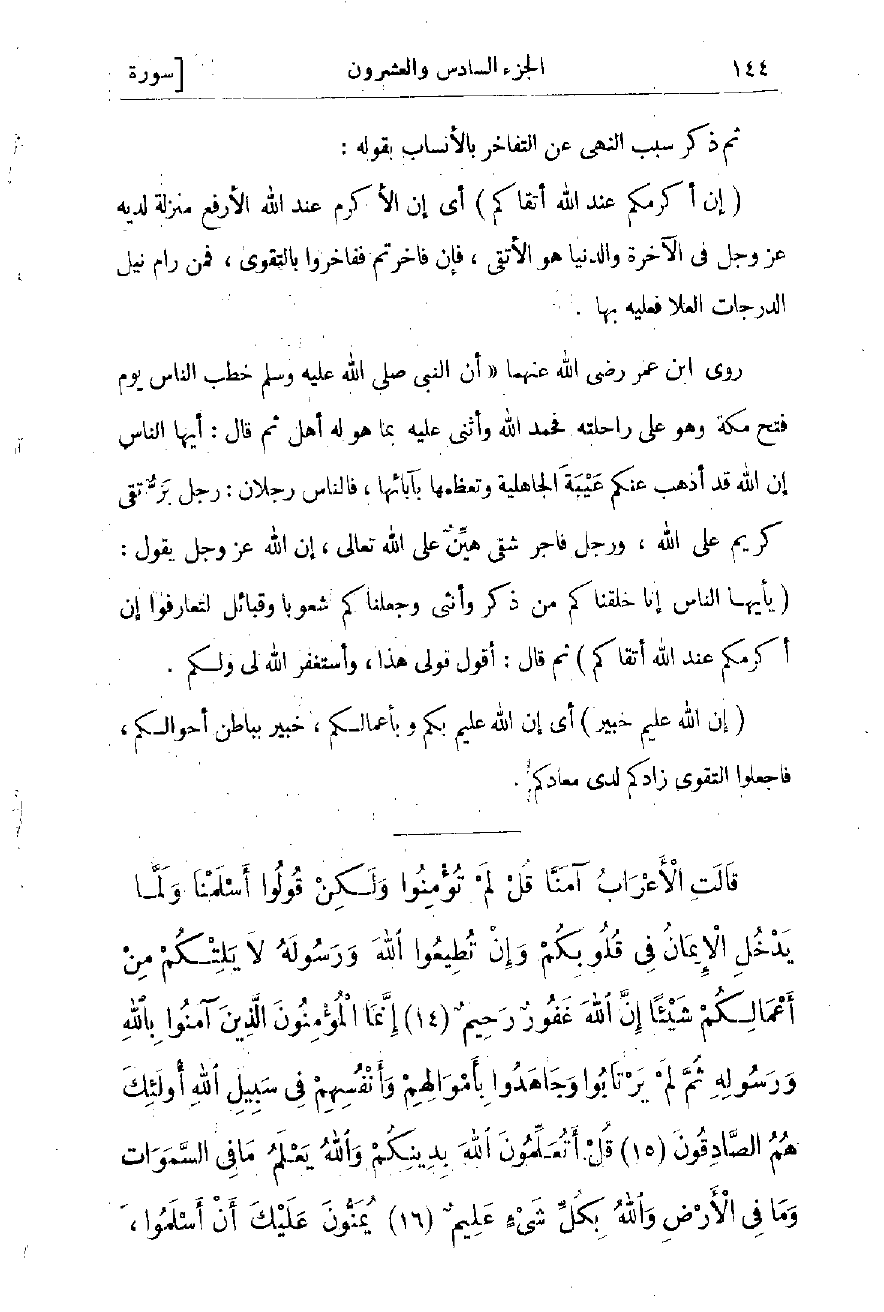 ١٤٤ الجزء السادس والعشرون [سورة
ثم ذكر سبب النهى عن التفاخر بالأنساب بقوله :
( إن أكرمكم عند الله أتقاكم ) أى إن الأكرم عند الله الأرفع منزلة لديه
عز وجل فى الآخرة والدنيا هو الأتقى ، فإن فاخرتم ففاخروا بالتقوى ، فمن رام نيل
الدرجات العلا فعليه بها .
روى ابن عمر رضى الله عنهما « أن النبى صلى الله عليه وسلم خطب الناس يوم
فتح مكة وهو على راحلته فحمد الله وأثنى عليه بما هو له أهل ثم قال : أيها الناس
إن الله قد أذهب عنكم عَيْبَةَ الجاهلية وتعظمها بآبائها ، فالناس رجلان : رجل بَرٌّ تقى
كريم على الله ، ورجل فاجر شقى هيِّنٌ على الله تعالى ، إن الله عز وجل يقول :
( يأيها الناس إنا خلقناكم من ذكر وأنثى وجعلناكم شعوبا وقبائل لتعارفوا إن
أكرمكم عند الله أتقاكم ) ثم قال : أقول قولى هذا ، وأستغفر الله لى ولكم .
( إن الله عليم خبير ) أى إن الله عليم بكم وبأعمالكم ، خبير بباطن أحوالكم ،
فاجعلوا التقوى زادكم لدى معادكم .
قَالَتِ الْأَعْرَابُ آمَنَّا قُلْ لَمْ تُؤْمِنُوا وَلَكِنْ قُولُوا أَسْلَمْنَا وَلَمَّا
يَدْخُلِ الْإِيمَانُ فِى قُلُوبِكُمْ وَإِنْ تُطِيعُوا اللهَ وَرَسُولَهُ لاَ يَلِتْكُمْ مِنْ
أَعْمَالِكُمْ شَيْئًا إِنَّ اللهَ غَفُورٌ رَحِيمٌ (١٤) إِنَّمَا الْمُؤْمِنُونَ الَّذِينَ آمَنُوا بِاللهِ
وَرَسُولِهِ ثُمَّ لَمْ يَرْتَابُوا وَجَاهَدُوا بِأَمْوَالِهِمْ وَأَنْفُسِهِمْ فِى سَبِيلِ اللهِ أُولَئِكَ
هُمُ الصَّادِقُونَ (١٥) قُلْ أَتُعَلِّمُونَ اللهَ بِدِينِكُمْ وَاللهُ يَعْلَمُ مَا فِى السَّمَوَاتِ
وَمَا فِى الْأَرْضِ وَاللهُ بِكُلِّ شَىْءٍ عَلِيمٌ (١٦) يَمُنُّونَ عَلَيْكَ أَنْ أَسْلَمُوا ،